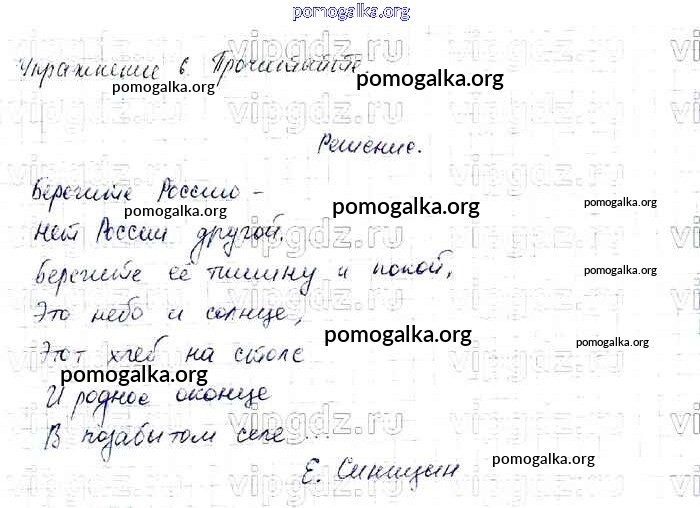 pomogalka.org
Упражнение 6 Прочитайте
pomogalka.org pomogalka.org
Решение.
Берегите Россию –
pomogalka.org pomogalka.org pomogalka.org
Нет России другой.
Берегите её тишину и покой,
pomogalka.org
Это небо и солнце,
pomogalka.org pomogalka.org
Этот хлеб на столе
pomogalka.org
И родное оконце
В позабытом селе ...
pomogalka.org
Е. Синицын
vipgdz.ru